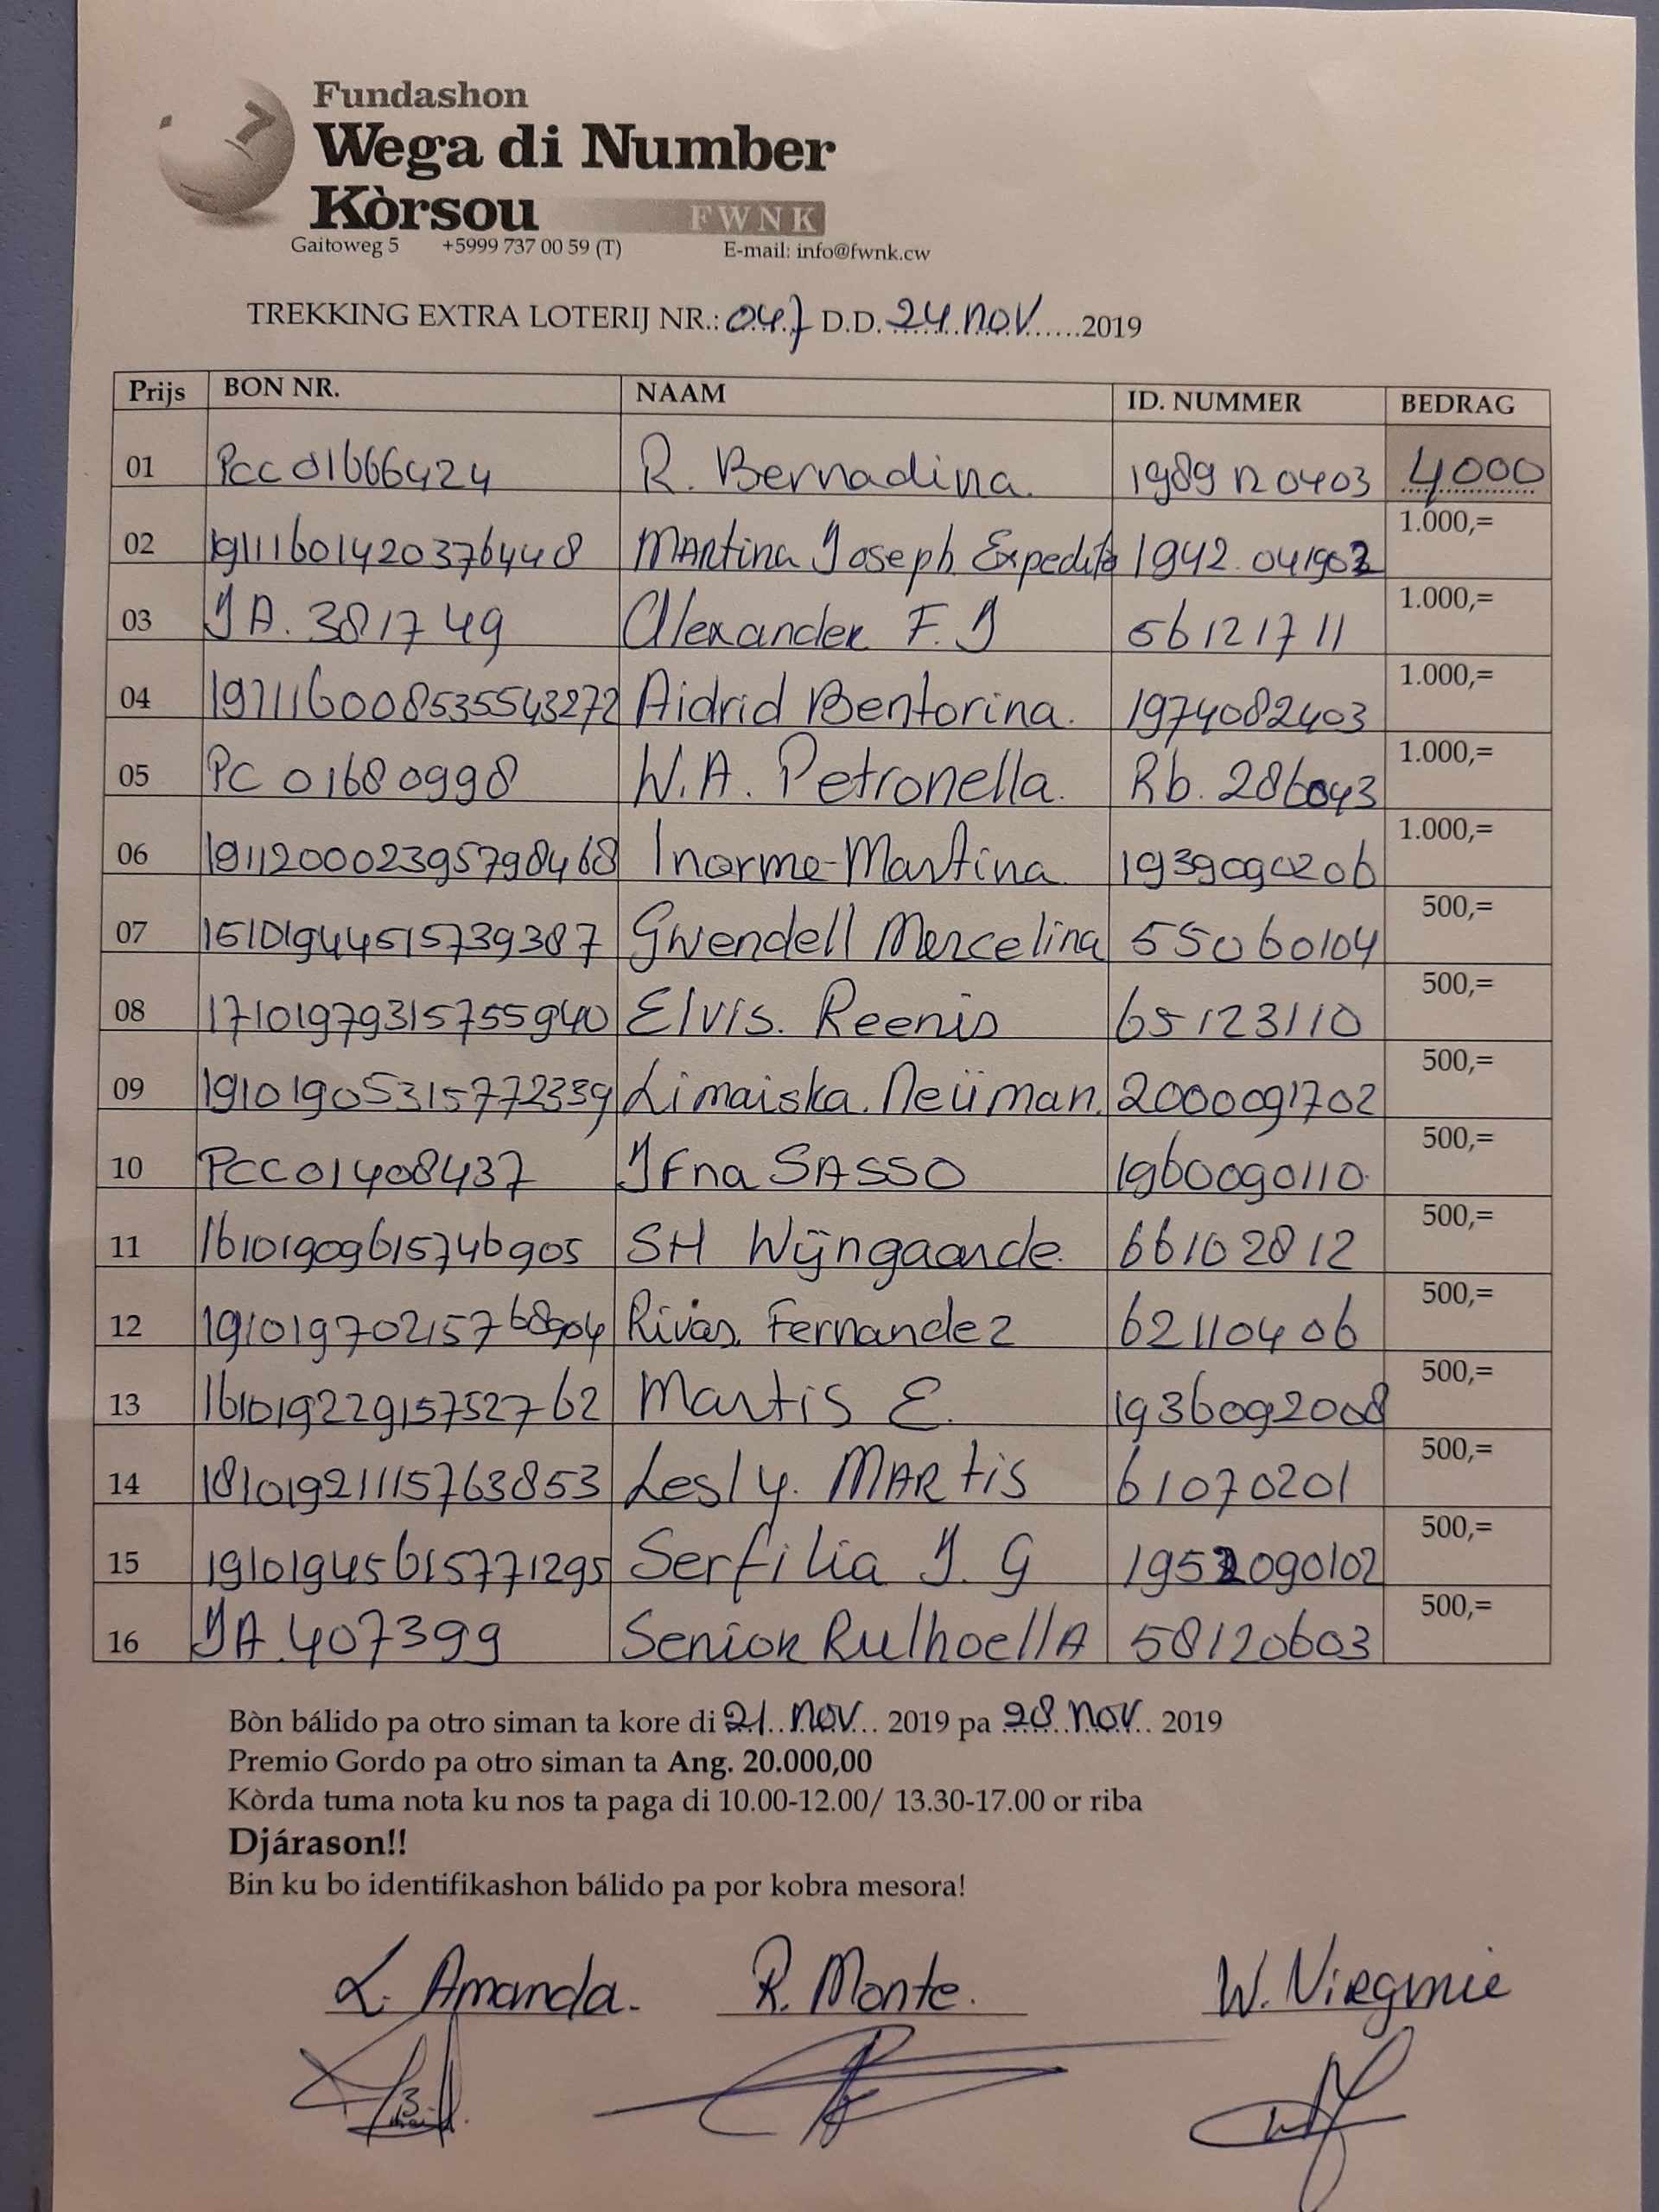 Fundashon
Wega di Number
Kòrsou FWNK
Gaitoweg 5 +5999 737 00 59 (T) E-mail: info@fwnk.cw
TREKKING EXTRA LOTERIJ NR.: 047 D.D. 24 nov 2019
Prijs BON NR. NAAM ID. NUMMER BEDRAG
01 PCC 01666424 R. Bernadina. 1989120403 4000
02 191116014203764448 Martina Joseph Expedito 1942.041903 1.000,=
03 JA. 381749 Alexander F. J 56121711 1.000,=
04 1971116008535543272 Aidrid Bentorina. 1974082403 1.000,=
05 PC 01680998 W.A. Petronella. Rb. 286043 1.000,=
06 191120002395798468 Inorme-Martina 1939090206 1.000,=
07 1510194451573​9387 Gwendell Mercelina 55060104 500,=
08 17101979315755940 Elvis. Reenis 65123110 500,=
09 19101905315772339 Limaiska. Neüman. 2000091702 500,=
10 PCC01408437 Jfna SASSO 1960090110. 500,=
11 16101909615746905 SH Wijngaarde. 66102812 500,=
12 19101970215768904 Rivas, Fernandez 62110406 500,=
13 16101922915752762 Martis E. 1936092008 500,=
14 18101921115763853 Lesly. MARtis 61070201 500,=
15 19101945615771295 Serfilia J. G 1952090102 500,=
16 JA.407399 Senior RulhoellA 58120603 500,=
Bòn bálido pa otro siman ta kore di 21. nov 2019 pa 28 nov 2019
Premio Gordo pa otro siman ta Ang. 20.000,00
Kòrda tuma nota ku nos ta paga di 10.00-12.00/ 13.30-17.00 or riba
Djárason!!
Bin ku bo identifikashon bálido pa por kobra mesora!
L. Amanda. R. Monte. W. Virginie